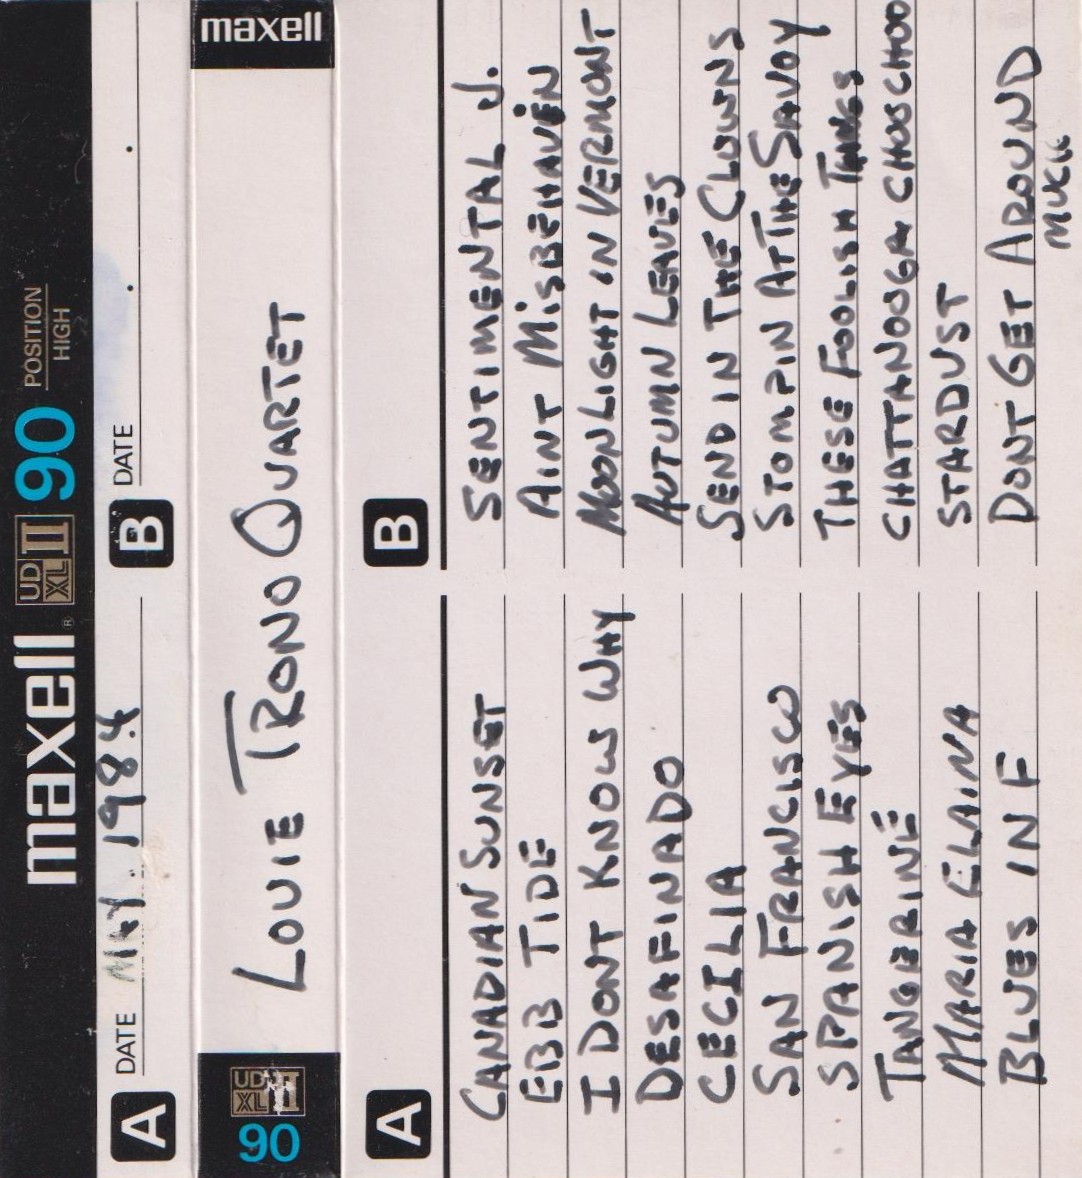 maxell UD XL II 90 POSITION HIGH
A DATE MAY 1984
B DATE
UD XL II 90
LOUIE TRONO QUARTET
maxell
A
CANADIAN SUNSET
EBB TIDE
I DONT KNOW WHY
DESAFINADO
CECILIA
SAN FRANCISCO
SPANISH EYES
TANGERINE
MARIA ELAINA
BLUES IN F
B
SENTIMENTAL J.
AINT MISBEHAVEN
MOONLIGHT IN VERMONT
AUTUMN LEAVES
SEND IN THE CLOWNS
STOMPIN AT THE SAVOY
THESE FOOLISH THINGS
CHATTANOOGA CHOO CHOO
STARDUST
DONT GET AROUND
MUCH